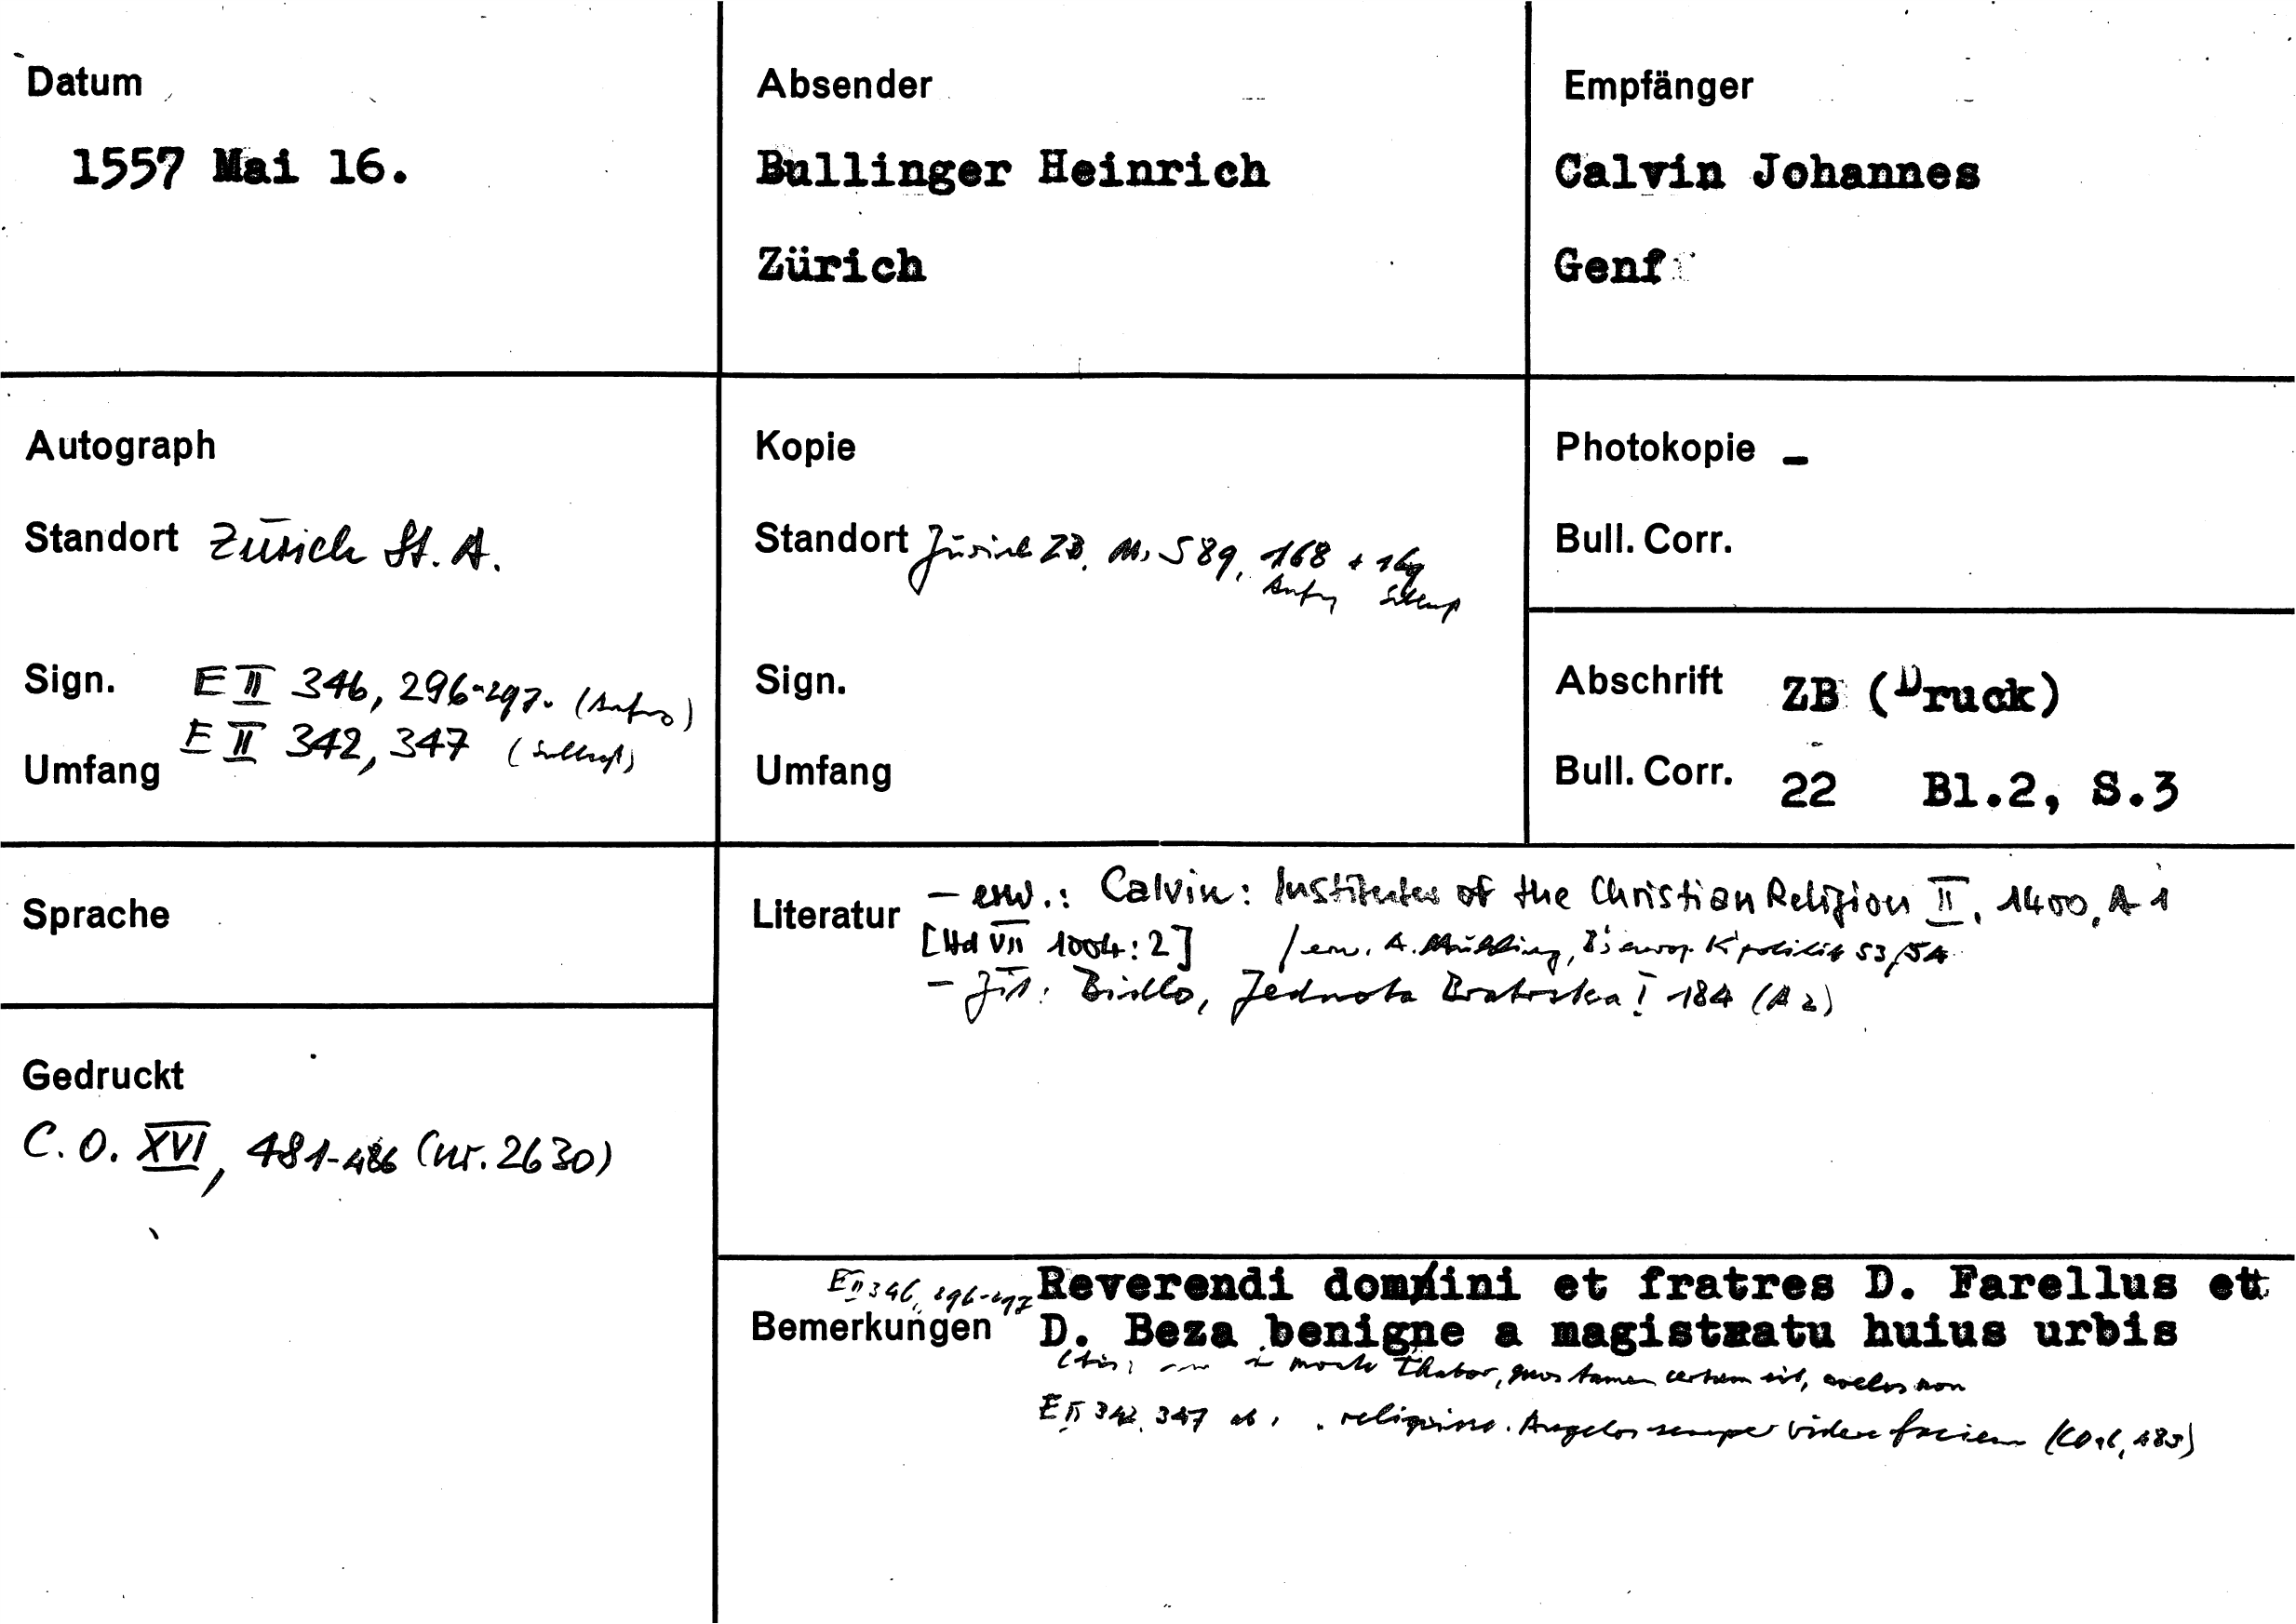 Datum
1557 Mai 16.
Absender
Bullinger Heinrich
Zürich
Empfänger
Calvin Johannes
Genf
Autograph
Standort Zürich St. A.
Sign. E II 346, 296-297. (Anfang)
E II 342, 347 (Schluss)
Umfang
Kopie
Standort Zürich ZB, Ms S 89, 168 + 169
Anfang Schluss
Sign.
Umfang
Photokopie –
Bull. Corr.
Abschrift ZB (Druck)
Bull. Corr. 22 Bl.2, S.3
Sprache
Gedruckt
C. O. XVI, 481-486 (Nr. 2630)
Literatur – erw.: Calvin: Institutes of the Christian Religion II, 1400, A 1
[Hd VII 1004:2] / erw. A. Mühling, B's europ. K'politik 53/54
– Zit: Bidlo, Jednota Bratrska I 184 (A 2)
E II 346, 296-297 Reverendi domini et fratres D. Farellus et
Bemerkungen D. Beza benigne a magistratu huius urbis
(bis: monte Thabor, quos tamen certum sit, coelos non
E II 342, 347 ab: religione. Angelos semper videre faciem (CO 16, 485)